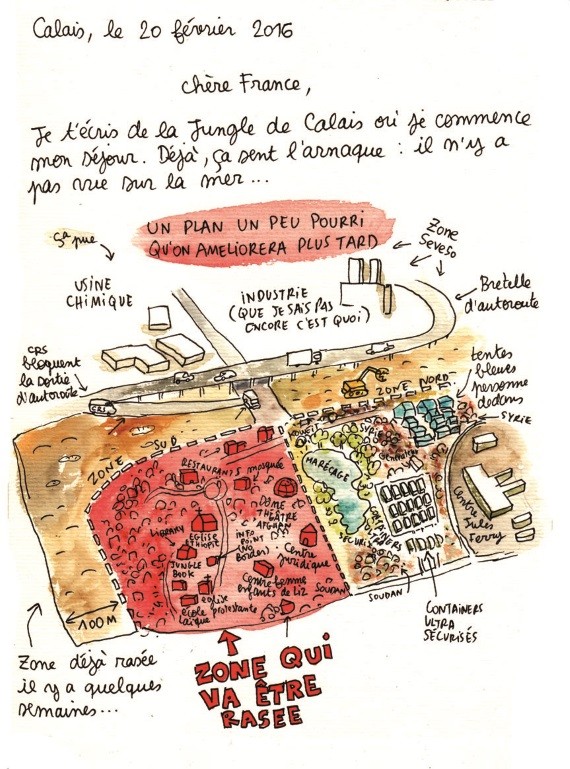 Calais, le 20 février 2016
chère France,
Je t'écris de la Jungle de Calais où je commence
mon séjour. Déjà, ça sent l'arnaque : il n'y a
pas vue sur la mer...
UN PLAN UN PEU POURRI
QU'ON AMELIORERA PLUS TARD
Zone
Seveso
ça pue
USINE
CHIMIQUE
INDUSTRIE
(QUE JE SAIS PAS
ENCORE C'EST QUOI)
Bretelle
d'autoroute
CRS
bloquent
la sortie
d'autoroute
CRS
tentes
bleues
personne
dedans
ZONE NORD
SYRIE
ZONE SUD
KOWEIT
SYRIE
RESTAURANTS
mosquée
MARÉCAGE
DÔME
THÉÂTRE
AFGHAN
LIBRARY
EGLISE
ETHIOPIE
INFO
POINT
(NO
Borders)
Centre
Juridique
CONTAINERS
SÉCURISÉS
Centre
Jules
Ferry
JUNGLE
BOOK
Centre femme
enfants de Liz
SOUDAN
eglise
protestante
école
laïque
SOUDAN
100 M
CONTAINERS
ULTRA
SÉCURISÉS
Zone déjà rasée
il y a quelques
semaines...
ZONE QUI
VA ÊTRE
RASEE